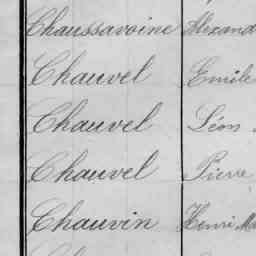 Chaussavoine Alexand
Chauvel Emile
Chauvel Léon
Chauvel Pierre
Chauvin Henri